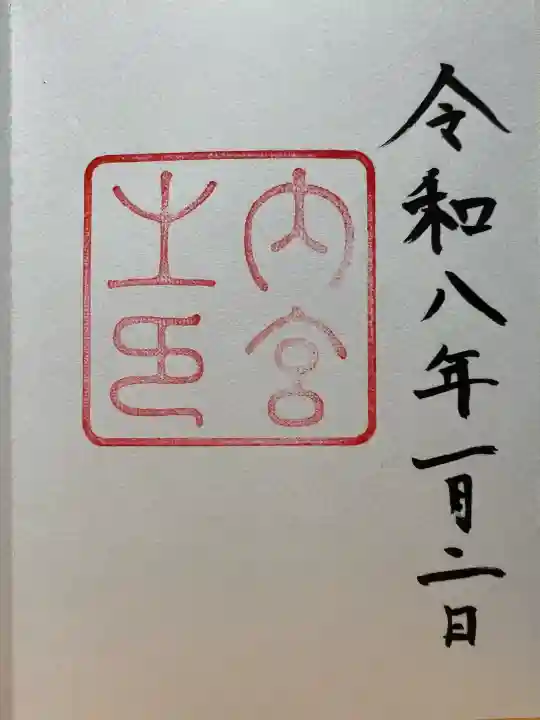 令和八年一月二日
内宮
之印